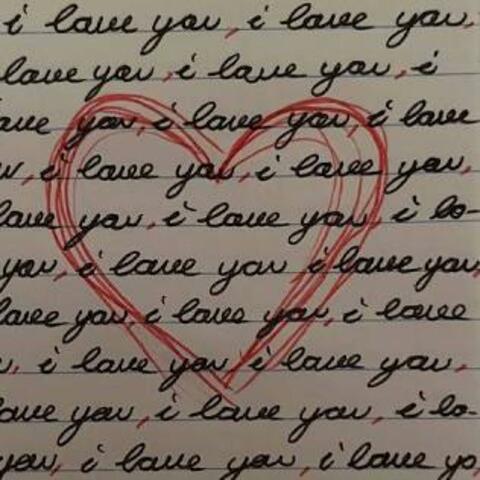 i love you, i love you,
love you, i love you, i
ove you, i love you, i love
i love you, i love you,
love you, i love you, i lo-
you, i love you i love you,
love you, i love you, i love
, i love you, i love you,
ove you, i love you, i lo-
you, i love you, i love yo